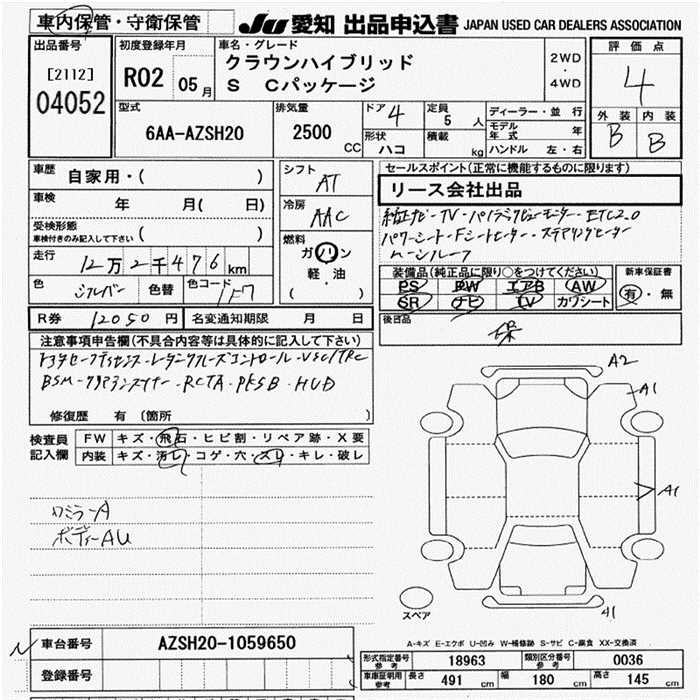 車内保管・守衛保管
JU 愛知 出品申込書 JAPAN USED CAR DEALERS ASSOCIATION
出品番号
[2112]
04052
初度登録年月
R02 05月
車名・グレード
クラウンハイブリッド
S Cパッケージ
2WD
・
4WD
評価点
4
外装 内装
B B
型式
6AA-AZSH20
排気量
2500 CC
ドア 4
形状 ハコ
定員 5 人
積載 kg
ディーラー・並行
モデル年式 年
ハンドル 左・右
車歴 自家用・( )
車検 年 月( 日)
受検形態
車検付きのみ記入して下さい ( )
走行 12万2千476km
色 シルバー 色替 色コード 1F7
シフト AT
冷房 AAC
燃料
ガソリン
軽・油
( )
セールスポイント(正常に機能するものに限ります)
リース会社出品
純正ナビ・TV・パノラミックビューモニター・ETC2.0
パワーシート・Fシートヒーター・ステアリングヒーター
ムーンルーフ
装備品(純正品に限り○をつけてください)
PS PW エアB AW
SR ナビ TV カワシート
新車保証書
有・無
R券 12050円 名変通知期限 月 日
後日品
保
注意事項申告欄(不具合内容等は具体的に記入して下さい)
トヨタセーフティセンス・レーダークルーズコントロール・VSC/TRC
BSM・クリアランスソナー・RCTA・PKSB・HUD
修復歴 有(箇所 )
検査員記入欄
FW キズ・飛石・ヒビ割・リペア跡・X要
内装 キズ・汚レ・コゲ・穴・スレ・キレ・破レ
Wミラー A
ボディー AU
A2
A1
A1
A1
スペア
A-キズ E-エクボ U-凹み W-補修跡 S-サビ C-腐食 XX-交換済
車台番号 AZSH20-1059650
登録番号
形式指定番号 参考 18963 類別区分番号 参考 0036
車庫証明用 参考 長さ 491 cm 幅 180 cm 高さ 145 cm